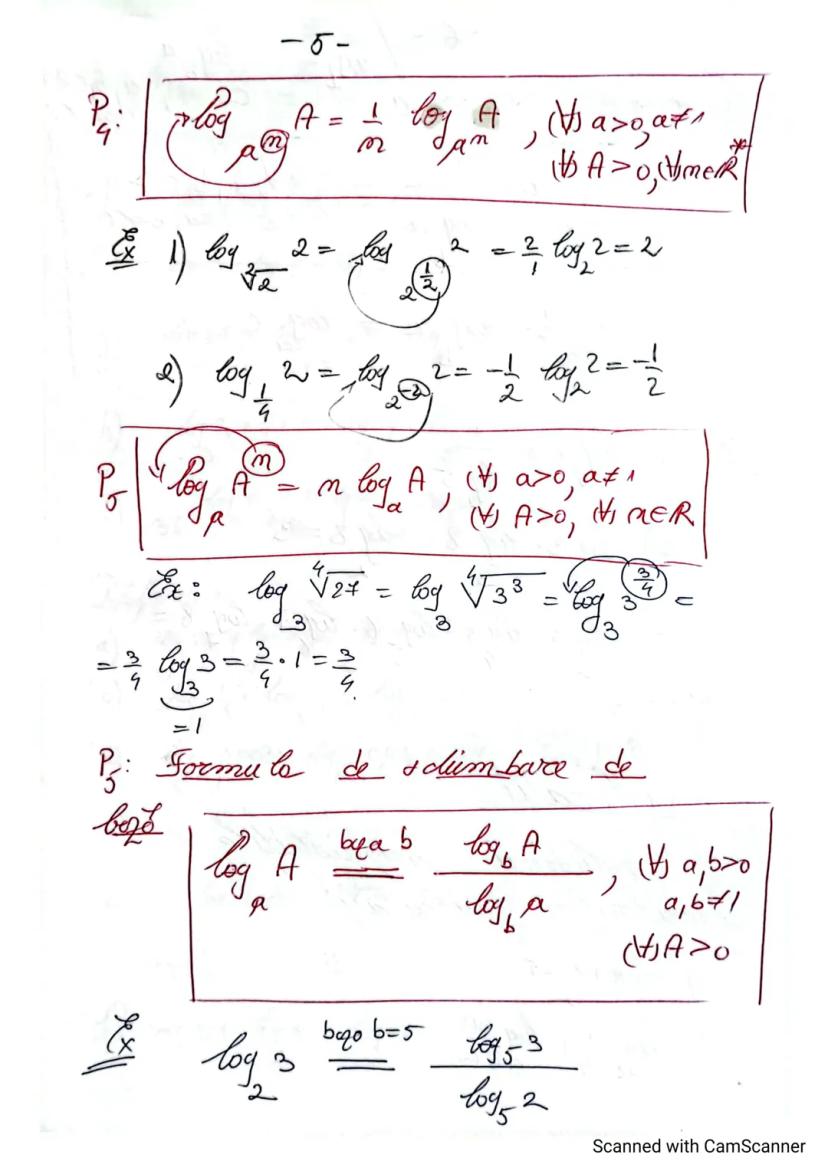 -5-
P₄: log_{a^n} A = 1/n log_{a^n} A, (∀) a>0, a≠1
(∀) A>0, (∀) n∈R*
Ex 1) log_{²√2} 2 = log_{2^{1/2}} 2 = 2/1 log₂ 2 = 2
2) log_{1/4} 2 = log_{2^{-2}} 2 = -1/2 log₂ 2 = -1/2
P₅ log_a A^n = n log_a A, (∀) a>0, a≠1
(∀) A>0, (∀) n∈R
Ex: log₃ ⁴√27 = log₃ ⁴√3³ = log₃ 3^{3/4} =
= 3/4 log₃ 3 = 3/4 · 1 = 3/4.
=1
P₅: Formula de schimbare de
bază
log_a A =(baza b)= log_b A / log_b a, (∀) a,b>0
a,b≠1
(∀) A>0
Ex log₂ 3 =(baza b=5)= log₅ 3 / log₅ 2
Scanned with CamScanner